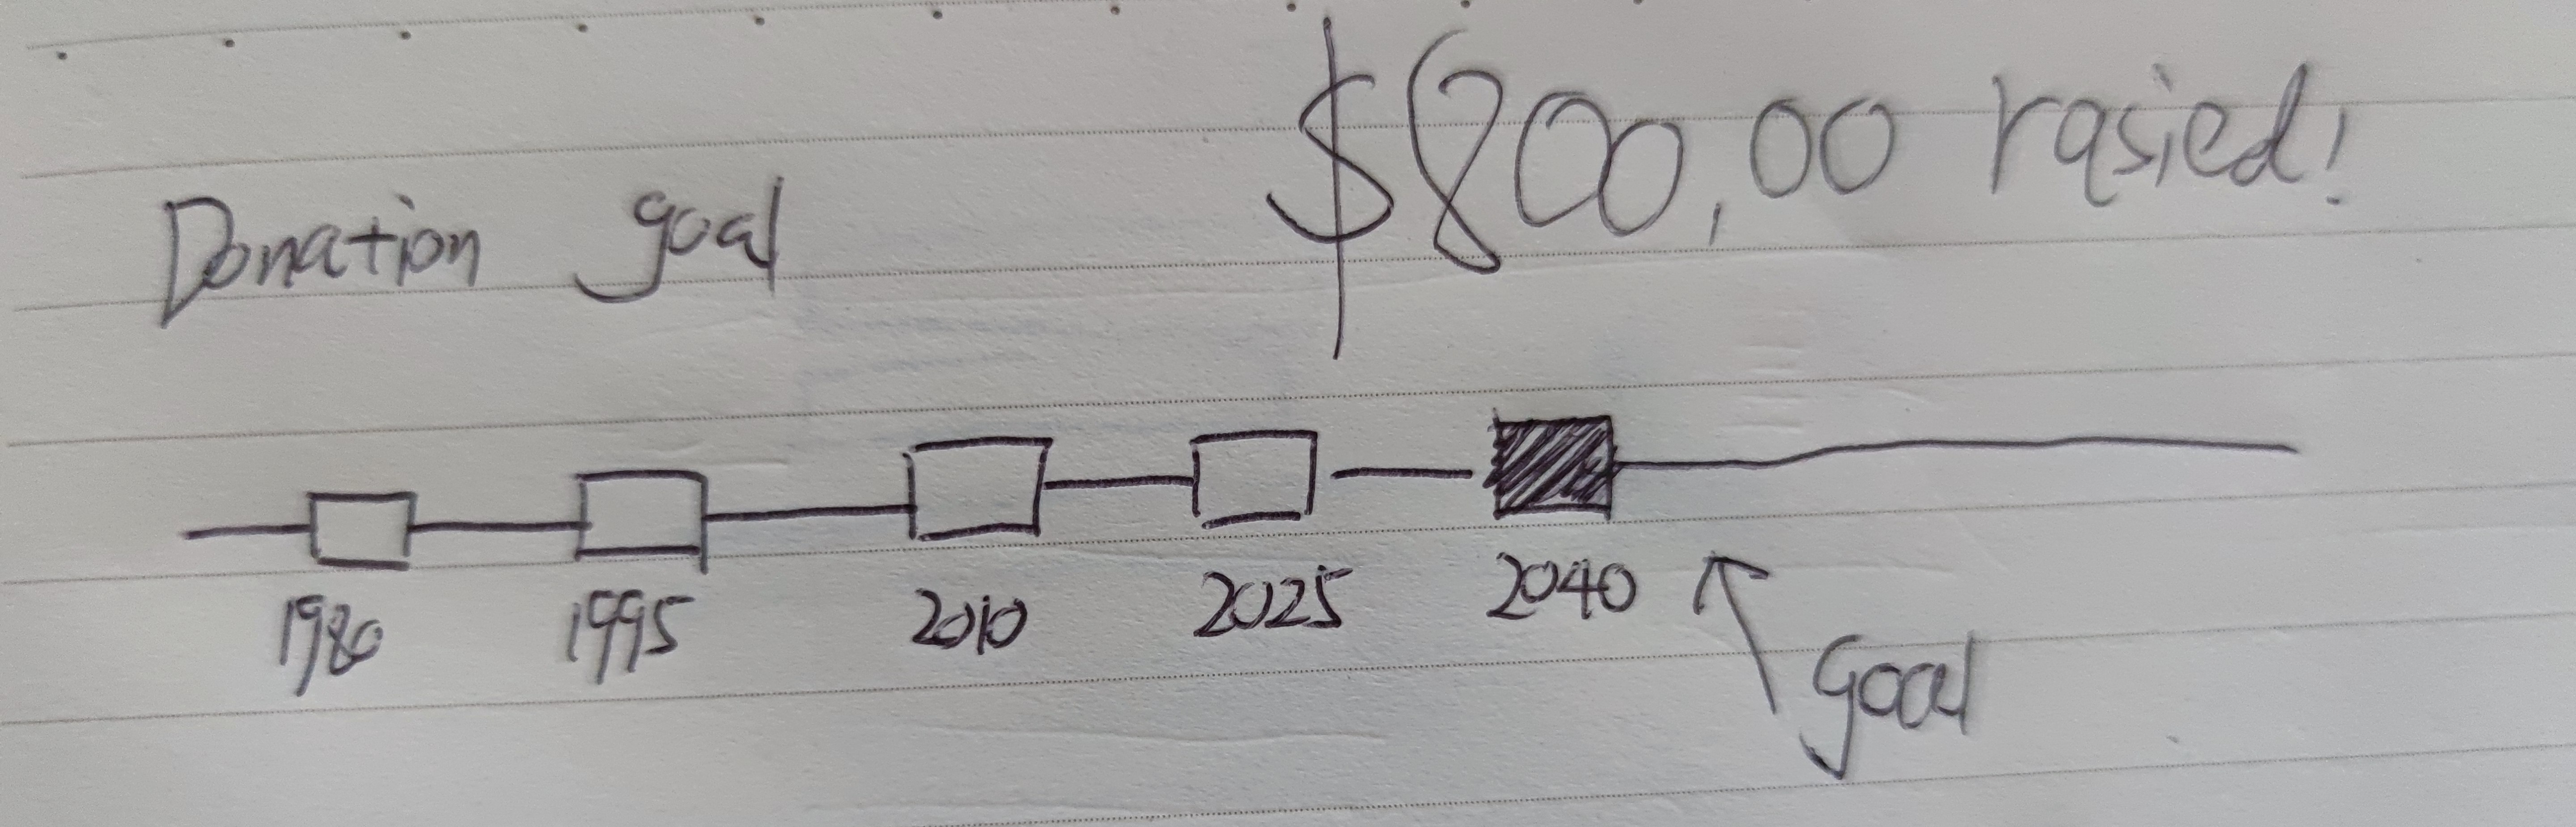 Donation goal
$800,00 rasied!
1980
1995
2010
2025
2040
goal